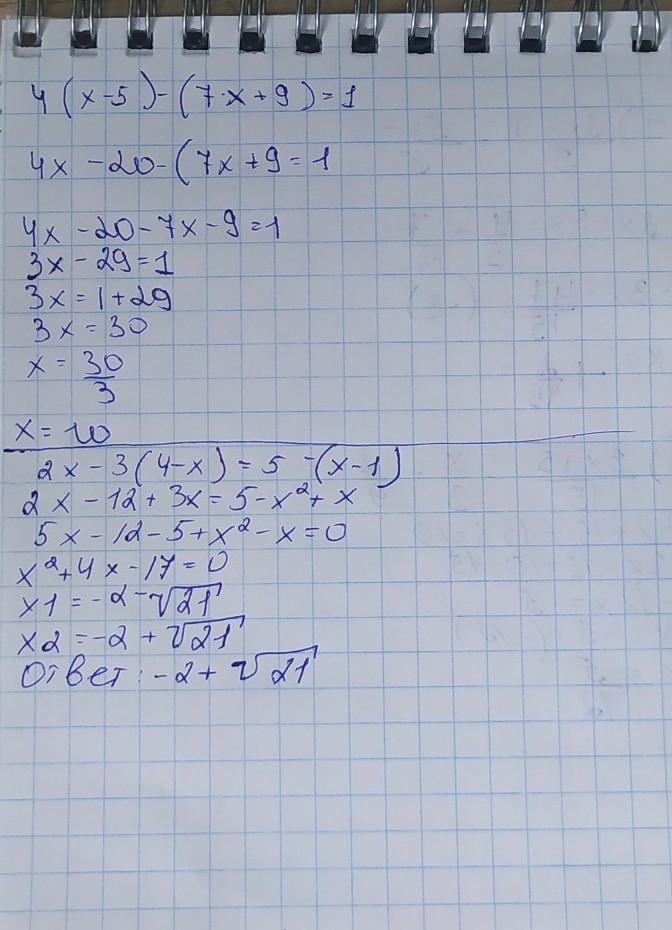 4(x-5)-(7·x+9)=1
4x -20-(7x+9=1
4x -20-7x-9=1
3x-29=1
3x=1+29
3x=30
x=30/3
x=10
2x-3(4-x)=5 -(x-1)
2x-12+3x=5-x²+x
5x-12-5+x²-x=0
x²+4x-17=0
x1=-2-√21
x2=-2+√21
Ответ:-2+√21